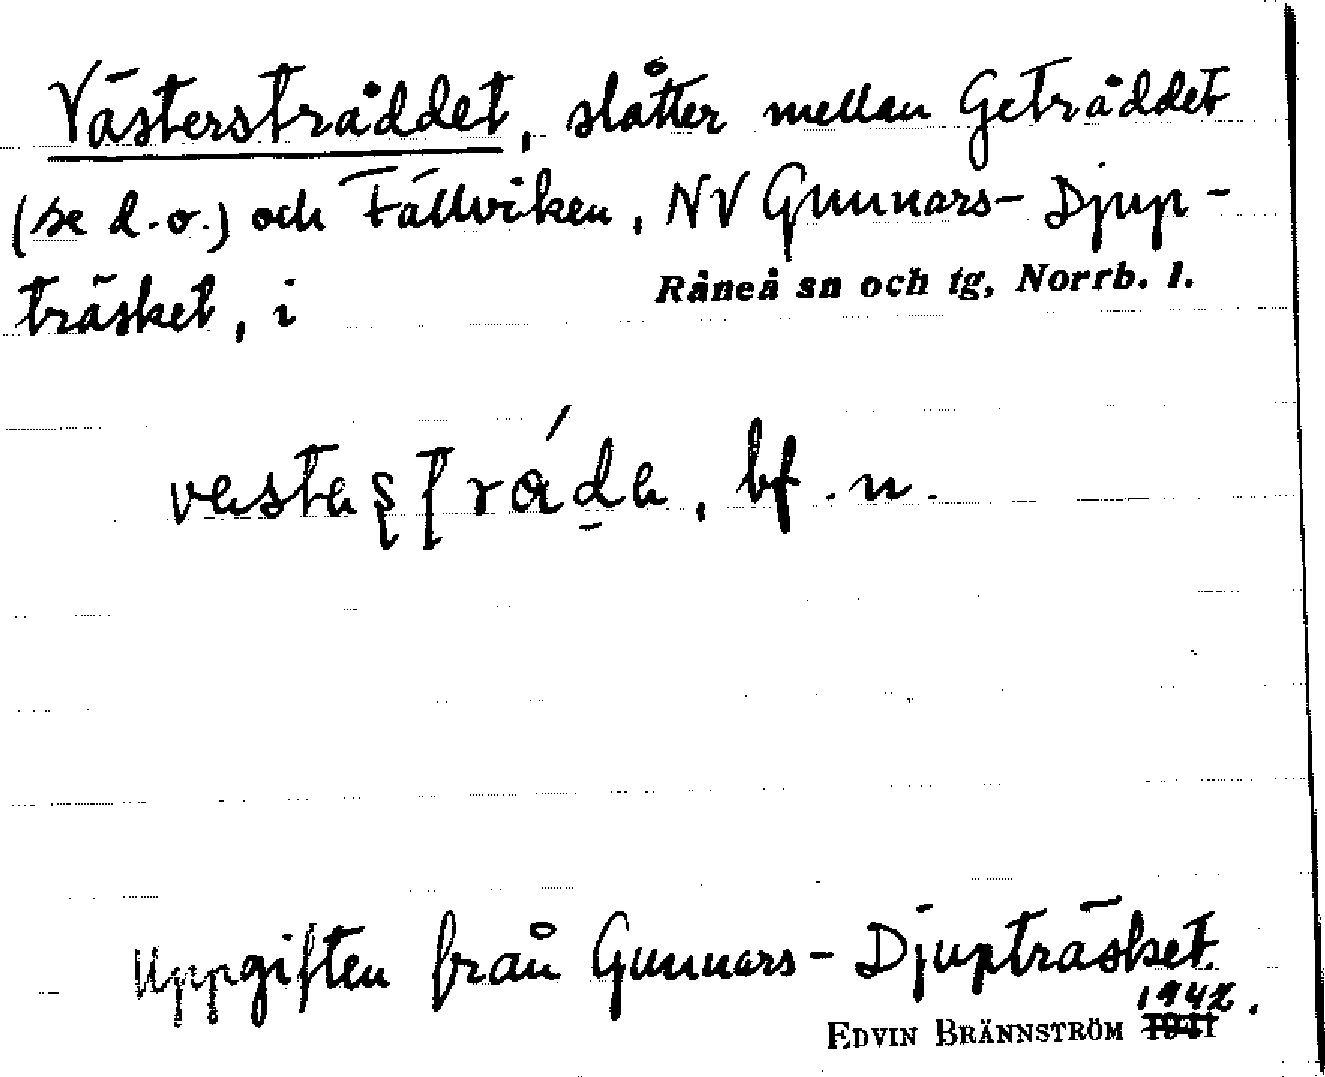 Västersträddet, slåtter mellan Geträddet
(se d.o.) och Fällviken, NV Gunnars-Djup-
träsket, i Råneå sn och tg, Norrb. l.
bf. n.
Uppgiften från Gunnars-Djupträsket
1942.
EDVIN BRÄNNSTRÖM 1941